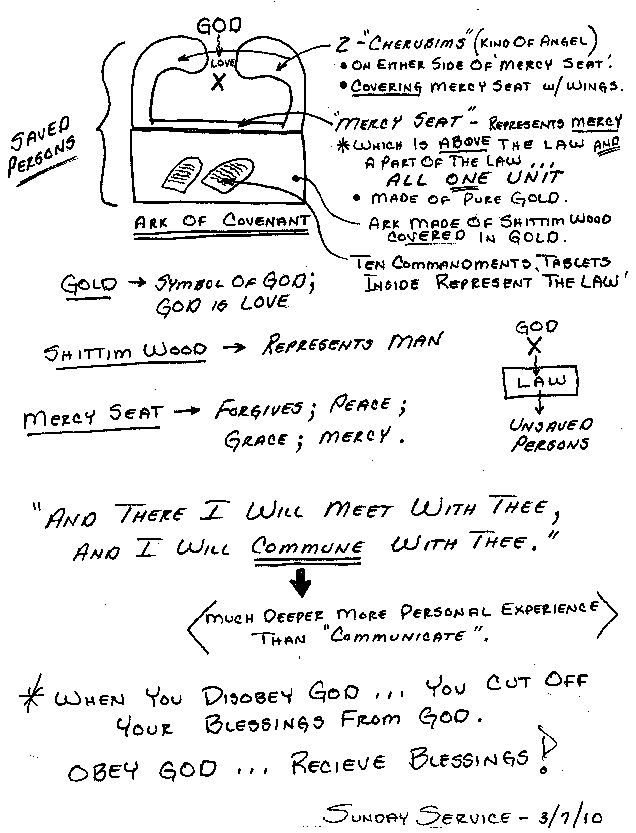 GOD
LOVE
X
2-"CHERUBIMS" (KIND OF ANGEL)
• ON EITHER SIDE OF 'MERCY SEAT'.
• COVERING MERCY SEAT W/ WINGS.
SAVED
PERSONS
"MERCY SEAT" - REPRESENTS MERCY
* WHICH IS ABOVE THE LAW AND
A PART OF THE LAW ...
ALL ONE UNIT
• MADE OF PURE GOLD.
ARK OF COVENANT
ARK MADE OF SHITTIM WOOD
COVERED IN GOLD.
TEN COMMANDMENTS, TABLETS
INSIDE REPRESENT THE LAW'
GOLD → SYMBOL OF GOD;
GOD IS LOVE
SHITTIM WOOD → REPRESENTS MAN
GOD
X
LAW
UNSAVED
PERSONS
MERCY SEAT → FORGIVES; PEACE;
GRACE; MERCY.
"AND THERE I WILL MEET WITH THEE,
AND I WILL COMMUNE WITH THEE."
<MUCH DEEPER MORE PERSONAL EXPERIENCE
THAN "COMMUNICATE".>
* WHEN YOU DISOBEY GOD ... YOU CUT OFF
YOUR BLESSINGS FROM GOD.
OBEY GOD ... RECIEVE BLESSINGS!
SUNDAY SERVICE - 3/7/10